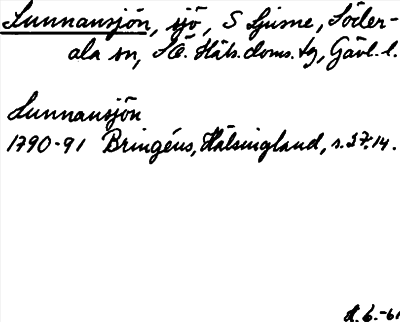 Lunnansjön, sjö, S Ljusne, Söder-
ala sn, SÖ. Häls. doms. tg, Gävl. l.
Lunnansjön
1790-91 Bringéus, Hälsingland, s. 37.14.
H. 6.-61